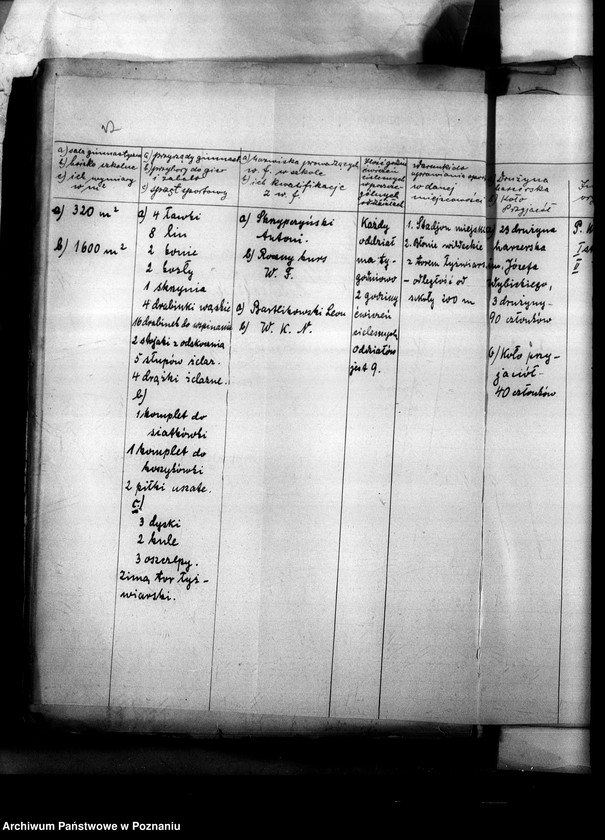 a) sala gimnastyczna
b) boisko szkolne
c) ich wymiary
w m²
a) 320 m²
b) 1600 m²
a) przyrządy gimnast.
b) przybory do gier
i zabaw
c) sprzęt sportowy
a) 4 ławki
8 lin
2 konie
2 kozły
1 skrzynia
4 drabinki wąskie
16 drabinek do wspinania
2 stojaki z odskocznią
5 słupów żelaz.
4 drążki żelazne.
b)
1 komplet do
siatkówki
1 komplet do
koszykówki
2 piłki uszate.
c)
3 dyski
2 kule
3 oszczepy.
Zimą tor łyż-
wiarski.
a) nazwiska prowadzących
w. f. w szkole
b) ich kwalifikacje
z w. f.
a) Skrypczyński
Antoni.
b) Roczny kurs
W. F.
a) Bartlikowski Leon
b) W. K. N.
Ilość godzin
ćwiczeń
cielesnych
w poszcze-
gólnych
oddziałach
Każdy
oddział
ma ty-
godniowo
2 godziny
ćwiczeń
cielesnych
Oddziałów
jest 9.
Warunki do
uprawiania sportu
w danej
miejscowości
1. Stadjon miejski
2. Błonie
z torem łyżwiarskim,
- odległość od
szkoły 200 m
a) Drużyna
harcerska
b) Koło
Przyjaciół
a) 23 drużyna
harcerska
im. Józefa
Wybickiego,
3 drużyny-
90 członków
b) Koło przy-
jaciół-
40 członków
P. K
I
II
Archiwum Państwowe w Poznaniu